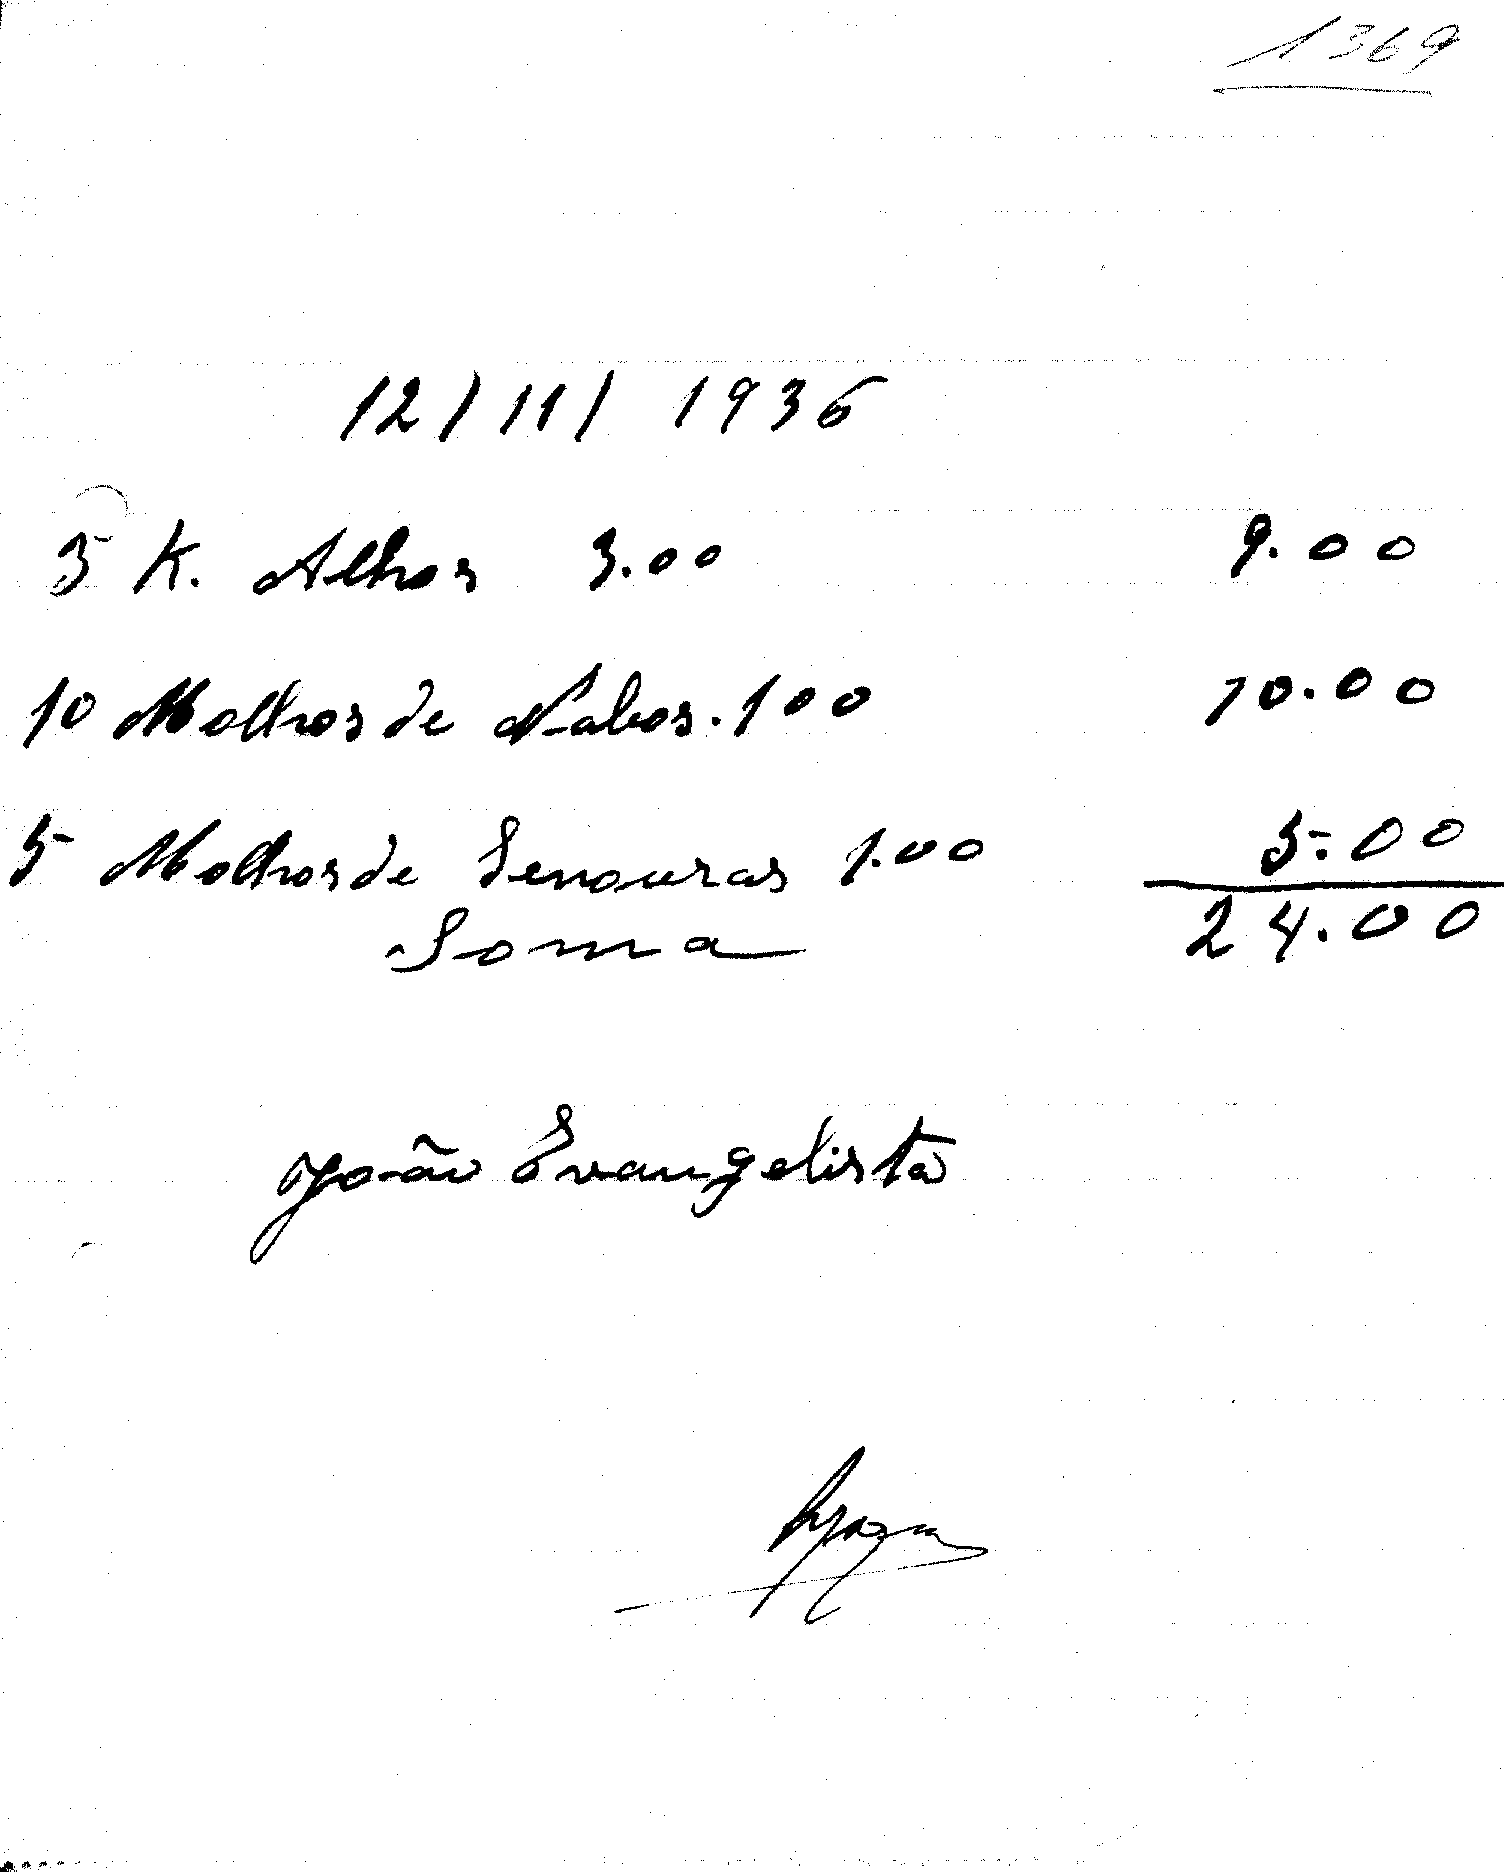 1369
12/11/1936
3 K. Alhos 3.00 9.00
10 Molhos de Nabos. 100 10.00
5 Molhos de Senouras 1.00 5.00
Soma 24.00
João Evangelista